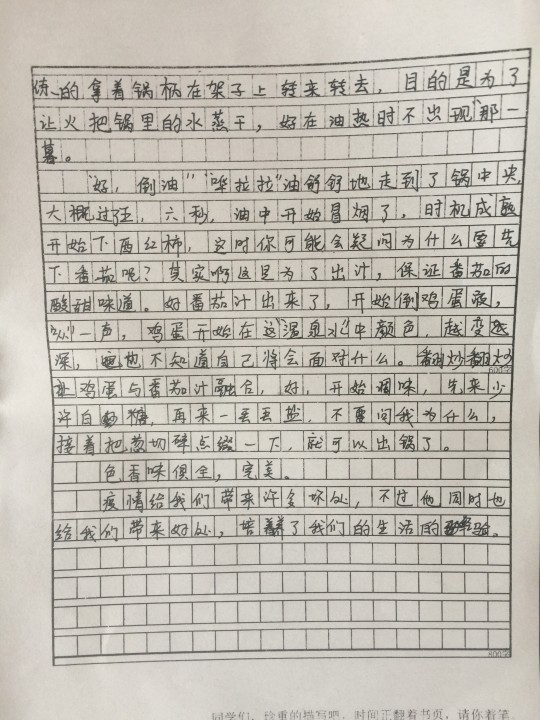 炼的拿着锅柄在架子上转来转去，目的是为了
让火把锅里的水蒸干，好在油热时不出现"那一
幕。
"好，倒油""哗拉拉"油舒舒地走到了锅中央，
大概过了五，六秒，油中开始冒烟了，时机成熟
开始下西红柿，这时你可能会疑问为什么要先
下番茄呢？其实啊这是为了出汁，保证番茄的
酸甜味道。好番茄汁出来了，开始倒鸡蛋液，
一声，鸡蛋开始在这"温泉水"中颜色，越变越
深，也不知道自己将会面对什么。翻炒翻炒
让鸡蛋与番茄汁融合，好，开始调味，先来少
许白糖，再来一丢丢盐，不要问我为什么，
接着把葱切碎点缀一下，就可以出锅了。
色香味俱全，完美。
疫情给我们带来许多坏处，不过他同时也
给我们带来好处，培养了我们的生活的经验。
600字
800字
同学们，珍重的描写吧，时间正翻着书页，请你着笔